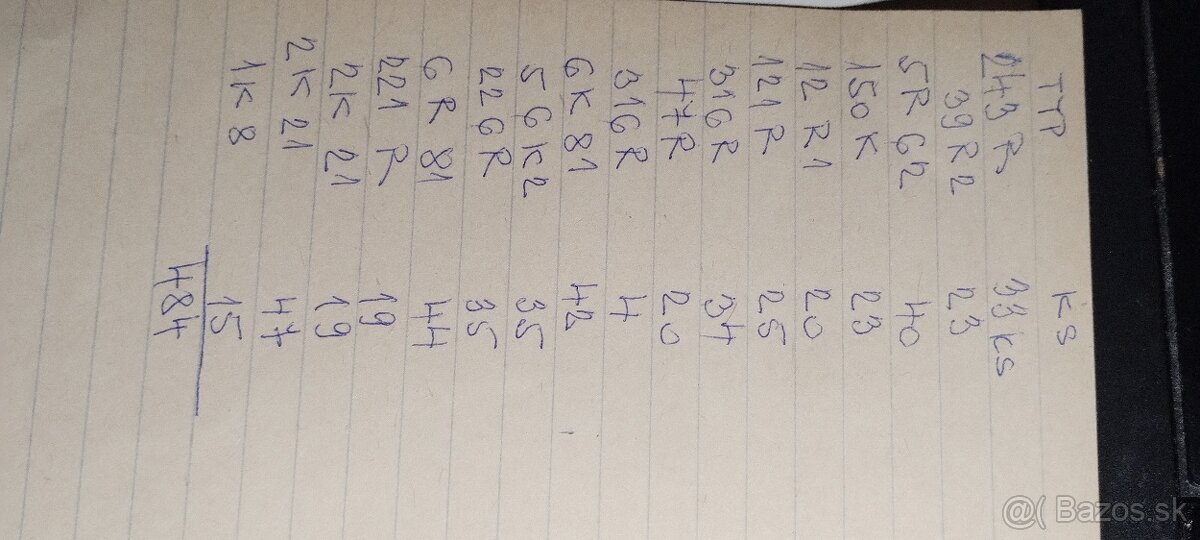 TYP KS
243 R 33 ks
39R2 23
5R62 40
150K 23
12R1 20
121R 25
316R 34
47R 20
316R 4
6K81 42
56K2 35
226R 35
6R81 44
221 R 19
2K21 19
2K21 47
1K8 15
484
@( Bazos.sk